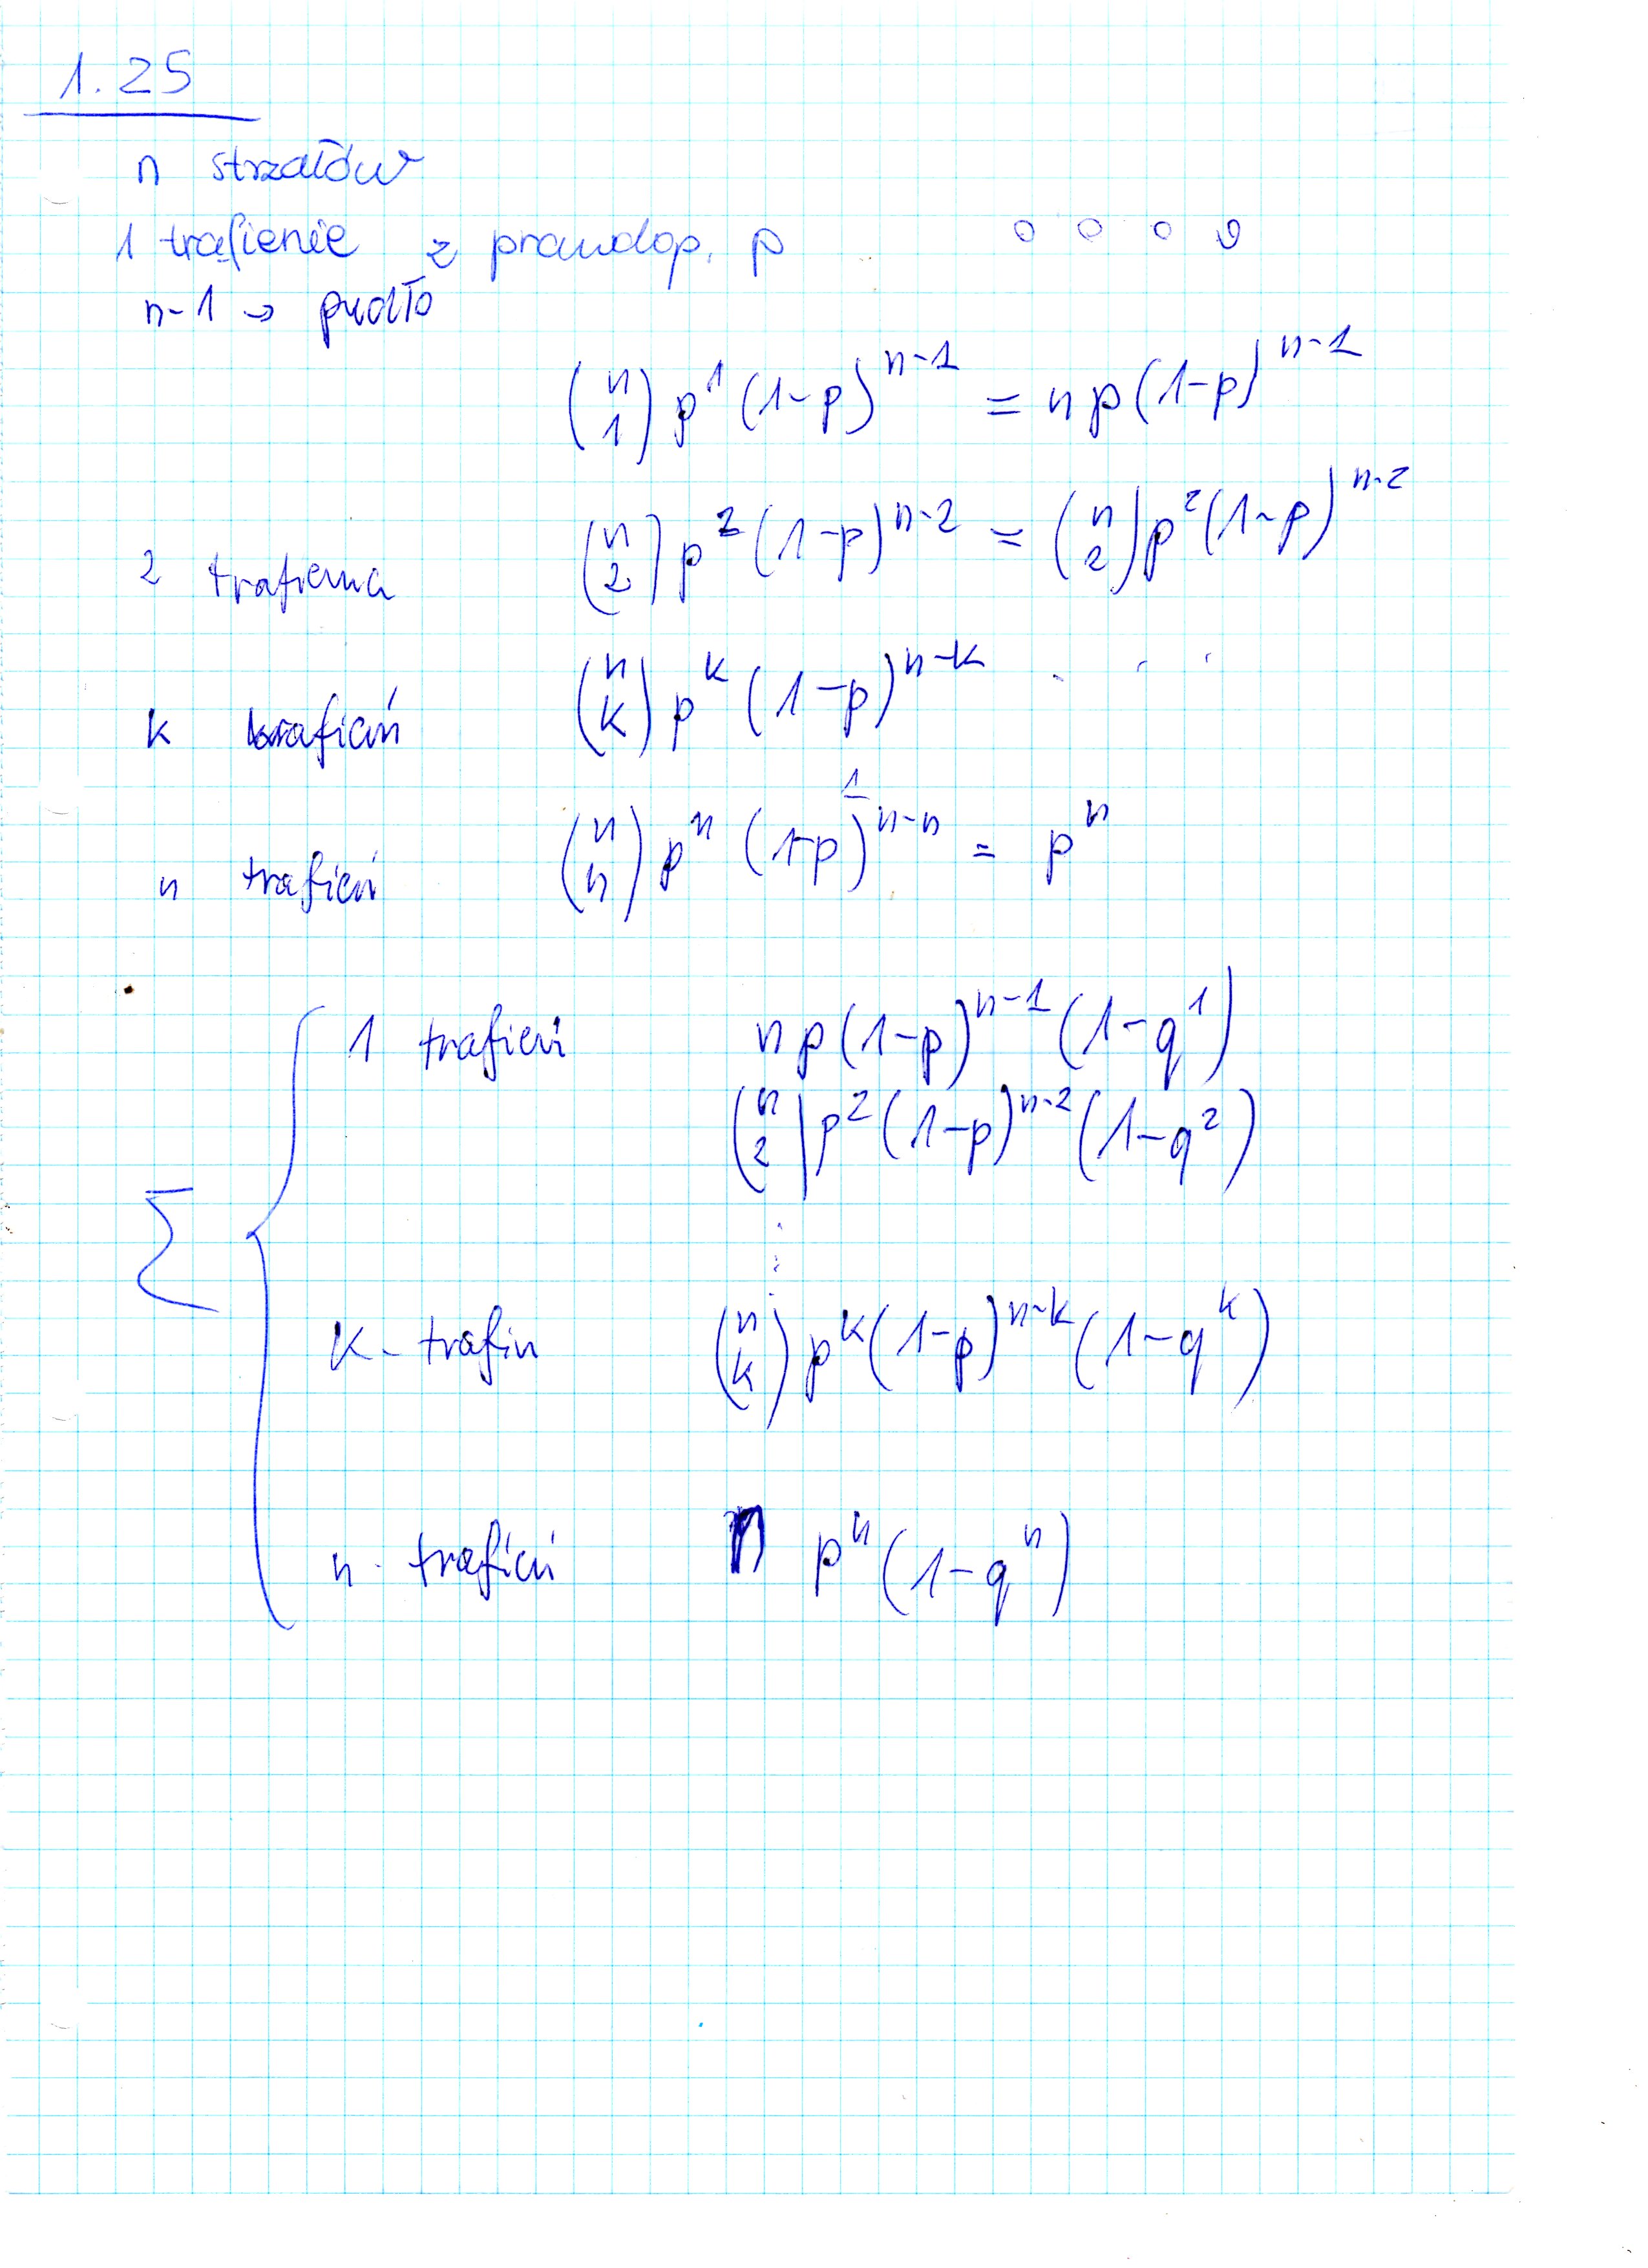 1.25
n strzałów
1 trafienie z prawdop. p
n-1 → pudło
(n 1) p^1 (1-p)^{n-1} = n p (1-p)^{n-1}
2 trafienia (n 2) p^2 (1-p)^{n-2} = (n 2) p^2 (1-p)^{n-2}
k trafień (n k) p^k (1-p)^{n-k}
n trafień (n n) p^n (1-p)^{n-n} = p^n
1
1 trafień n p (1-p)^{n-1} (1-q^1)
(n 2) p^2 (1-p)^{n-2} (1-q^2)
⋮
Σ {
K - trafin (n k) p^k (1-p)^{n-k} (1-q^k)
n - trafień p^n (1-q^n)